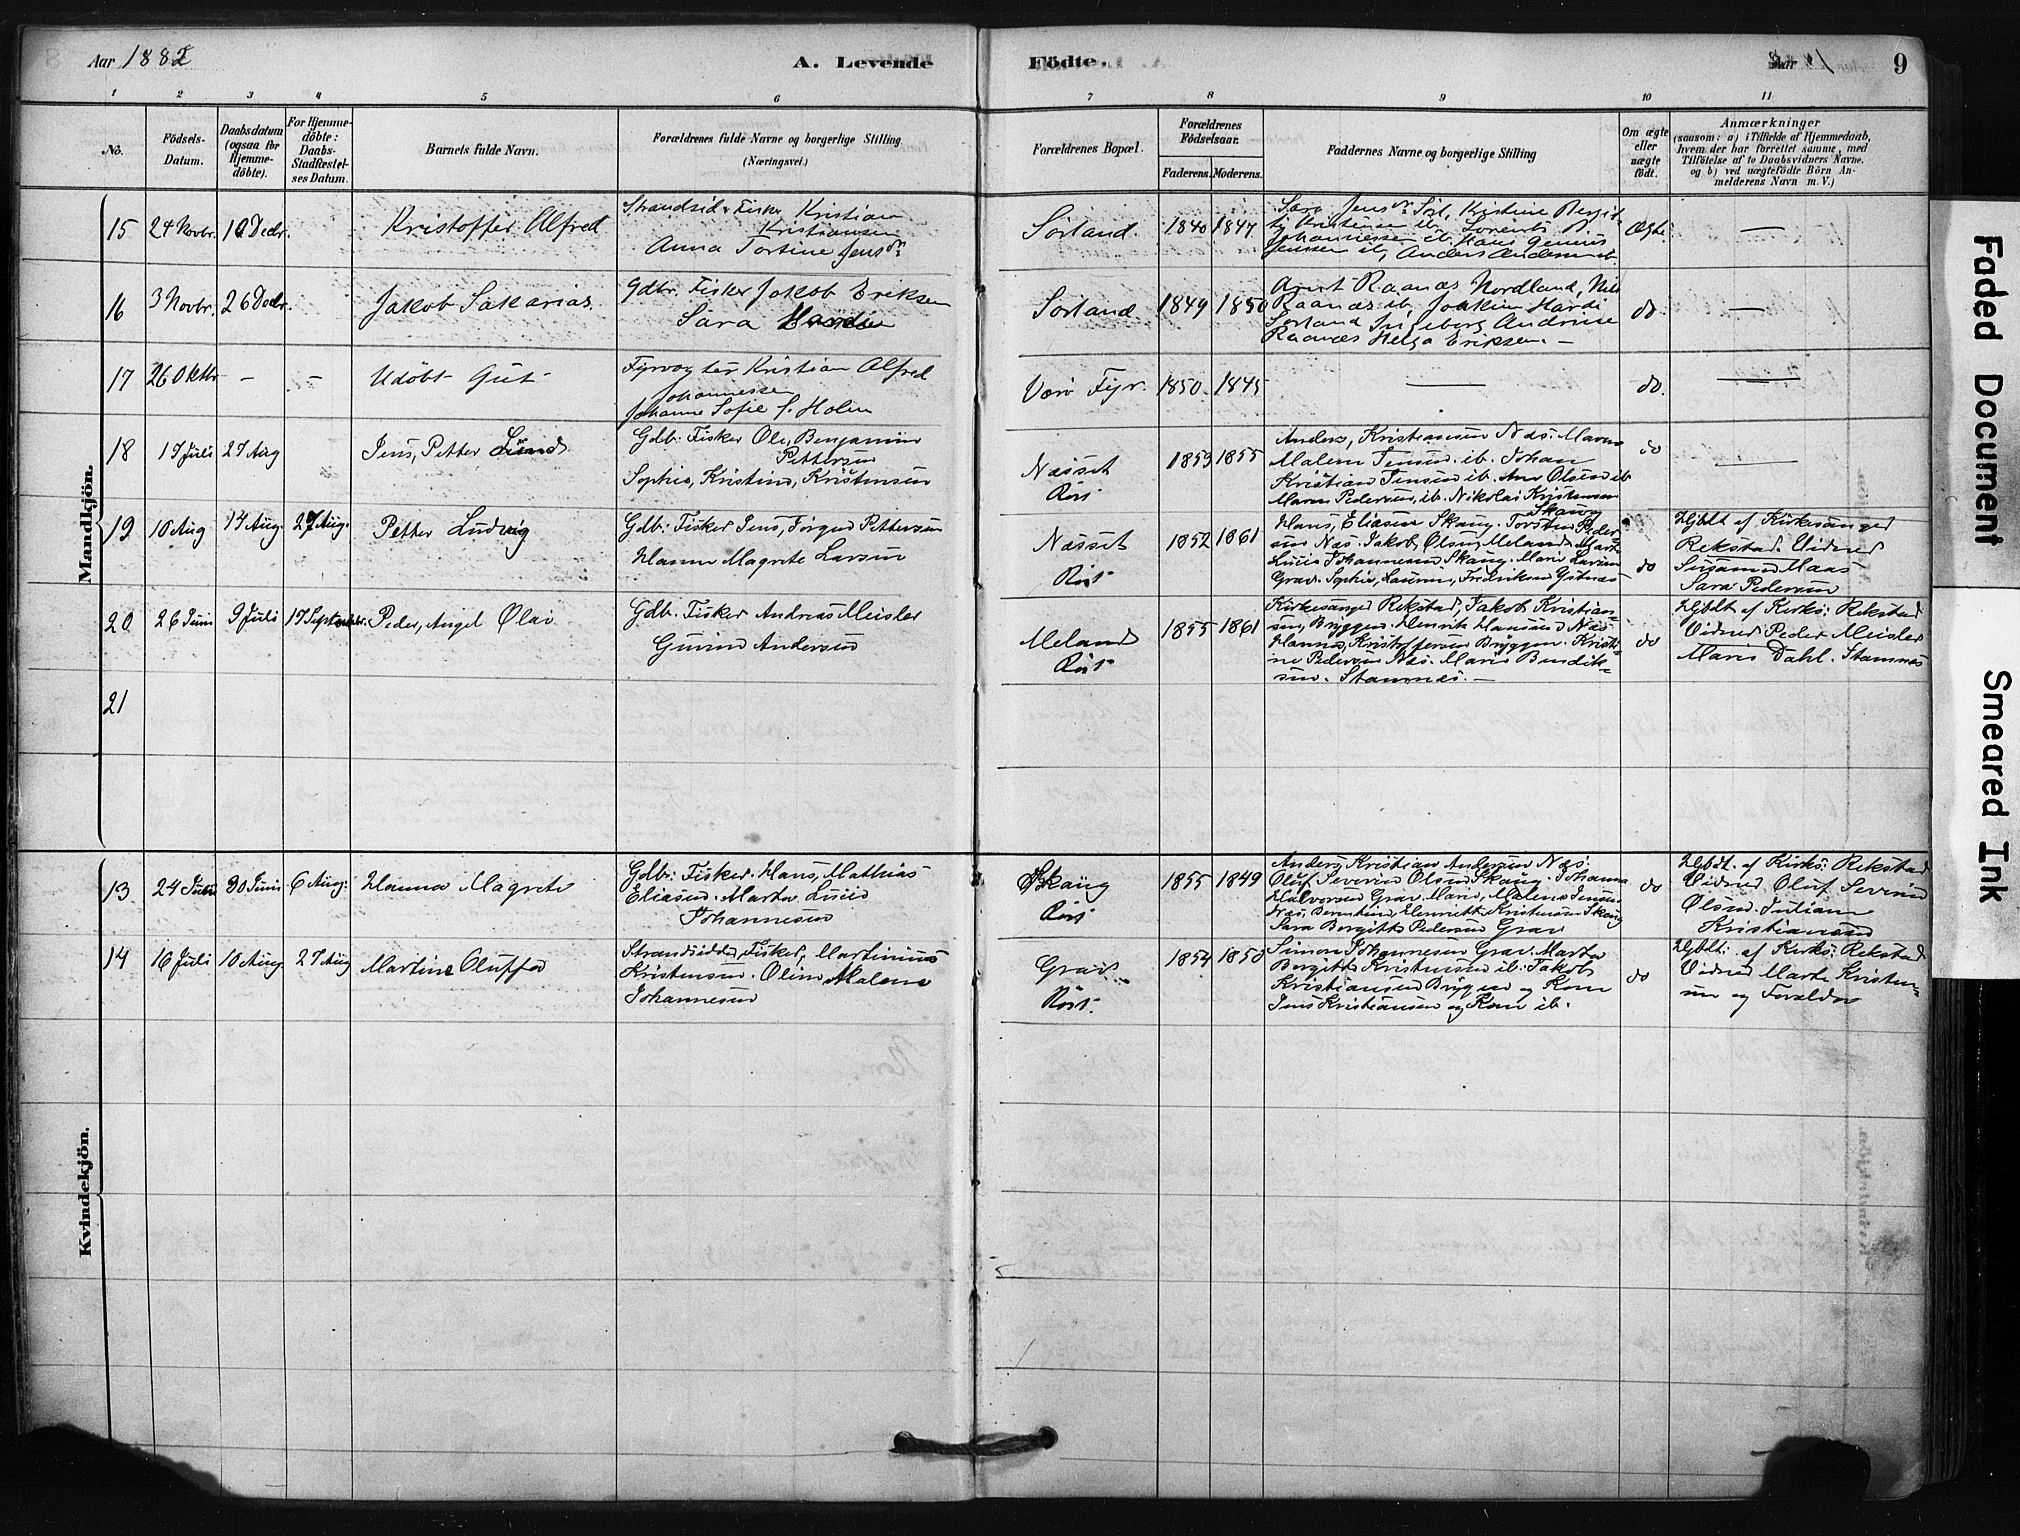 Aar 1882
A. Levende
Födte.
9
1 2 3 4 5 6 7 8 9 10 11
No.
Födsels-
Datum.
Daabsdatum
(ogsaa for
Hjemme-
döbte).
For Hjemme-
döbte:
Daabs-
Stadfæstel-
ses Datum.
Barnets fulde Navn.
Forældrenes fulde Navne og borgerlige Stilling
(Næringsvei.)
Forældrenes Bopæl.
Forældrenes
Födselsaar.
Faderens. Moderens.
Faddernes Navne og borgerlige Stilling
Om ægte
eller
uægte
födt.
Anmærkninger
(saasom: a) i Tilfælde af Hjemmedaab,
hvem der har forrettet samme, med
Tilföielse af to Daabsvidners Navne.
og b) ved uægtefödte Börn An-
melderens Navn m. V.)
Mandkjön.
15 24 Novbr. 12 Decbr. Kristoffer Alfred
Strandsid. Fisker Kristian
Kristiansen
Anna Tortine Jensdr
Sørland. 1840 1847
Sara Jensdr Sørl, Kristine Bergit-
te Kristensen ib, Lorents B.
Johannessen ib. Hans Genius
Jenssen ib, Anders Andersen ib.
Ægte —
16 3 Novbr. 26 Decbr. Jakob Sakarias.
Gdbr. Fisker Jakob Eriksen
Sara
Sørland. 1849 1850
Arnt Raanæs Nordland, Nils
Raanæs ib, Joakim Hardi
Sørland Ingeborg Andrine
Raanæs Helga Eriksen. —
do. —
17 26 Oktbr. — — Udöbt Gut
Fyrvogter Kristian Alfred
Johannessen
Johanne Sofie f. Holm
Værø Fyr. 1850. 1845 — do. —
18 17 Juli 27 Aug Jens, Petter
Gdb: Fisker Ole, Benjamin
Pettersen
Sophie, Kristine, Kristensen
Næsset
Røst
1853 1855
Anders, Kristiansen Næs. Maren
Malene Jensen ib. Johan
Kristian Jensen ib. Ane Olsen ib
Maren Pedersen, ib. Nikolai Kristensen
Skaug
do —
19 10 Aug 14 Aug. 27 Aug. Petter Ludvig
Gdb: Fisker Jens, Jørgen Pettersen
Hanna Magrete Larsen
Næsset
Røst
1852 1861
Hans, Eliasen Skaug. Torsten Peder-
sen Næs. Jakob, Olsen, Meland. Marte
Lucie Johannesen Skaug. Marie Larsen
Grav. Sophie, Fredriksen Ystnæs
do
Hjdbt af Kirkesanger
Rekstad. Vidner
Susanna Maas
Sara Pedersen
20 26 Juni 9 Juli 17 Septembr. Peder, Angel Olai
Gdb. Fisker Andreas Meisler
Andersen
Meland
Røst
1855 1861
Kirkesanger Rekstad, Jakob Kristian-
sen, Bryggen. Henrik Hansen Næs
Hanna, Kristoffersen Bryggen. Kristi-
ne Pedersen Næs. Marie Bendik-
sen. Stamnæs. —
do
Hjdbt af Kirks: Rekstad
Vidner Peder Meisler
Marie Dahl. Stamnæs
21
Kvindekjön.
13 24 Juni 30 Juni 6 Aug: Hanna Magrete
Gdb: Fisker. Hans, Mathias
Eliasen. Marta Lucie
Johannesen
Skaug
Røst
1855 1849
Anders, Kristian Andersen Næs:
Oluf Severin Olsen Skaug. Johanna
Halvorsen Grav. Marie, Malene Jensen
Næs, Berntine, Henrette Kristensen Skaug
Sara Bergitte Pedersen Grav
do
Hjbdt. af Kirks: Rekstad
Vidner Oluf Severin
Olsen. Juliane
Kristiansen
14 16 Juli 10 Aug. 27 Aug Martine Oluffa
Strandsidder, Fisker, Martinius
Kristensen. Oline Malene
Johannesen
Grav.
Røst.
1854 1850
Simon Johannesen Grav. Marta
Bergitte Kristensen ib. Jakob
Kristiansen Bryggen og Kone
Jens Kristiansen og Kone ib.
do
Hjbdt: af Kirks: Rekstad
Vidner Marte Kristen-
sen og Forældre
Faded Document
Smeared Ink